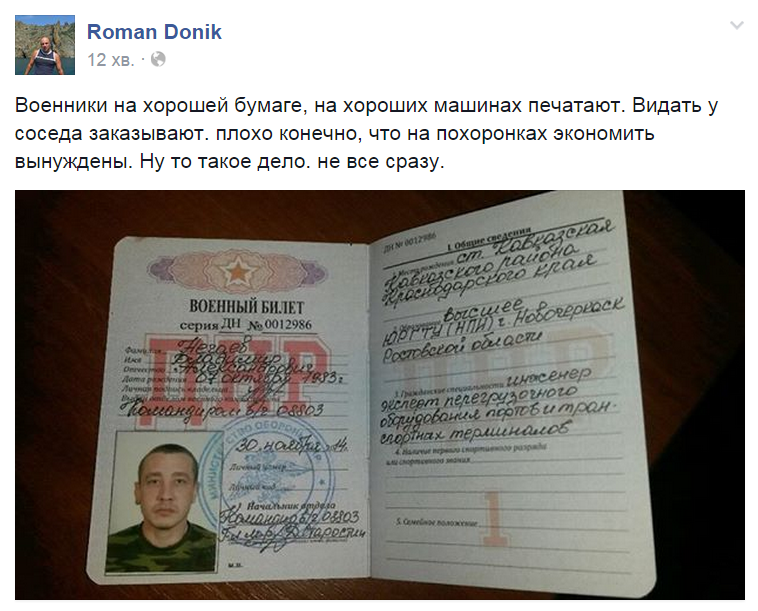 Roman Donik
12 хв.
Военники на хорошей бумаге, на хороших машинах печатают. Видать у
соседа заказывают. плохо конечно, что на похоронках экономить
вынуждены. Ну то такое дело. не все сразу.
ВОЕННЫЙ БИЛЕТ
серия ДН № 0012986
Фамилия
Имя Владимир
Отчество Александрович
Дата рождения 07 октября 1983 г.
Личная подпись владельца
Командиром в/ч 08803
МИНИСТЕРСТВО ОБОРОНЫ
30 ноября 2014.
Личный номер
Личный код
Начальник отдела
Командир в/ч 08803
М.П.
ДНР
ДН № 0012986
I. Общие сведения
1. Место рождения ст. Кавказская
Кавказского района
Краснодарского края
высшее
ЮРГТУ (НПИ) г. Новочеркасск
Ростовской области
3. Гражданские специальности инженер
эксперт перегрузочного
оборудования портов и тран-
спортных терминалов
4. Наличие первого спортивного разряда
или спортивного звания
5. Семейное положение
1